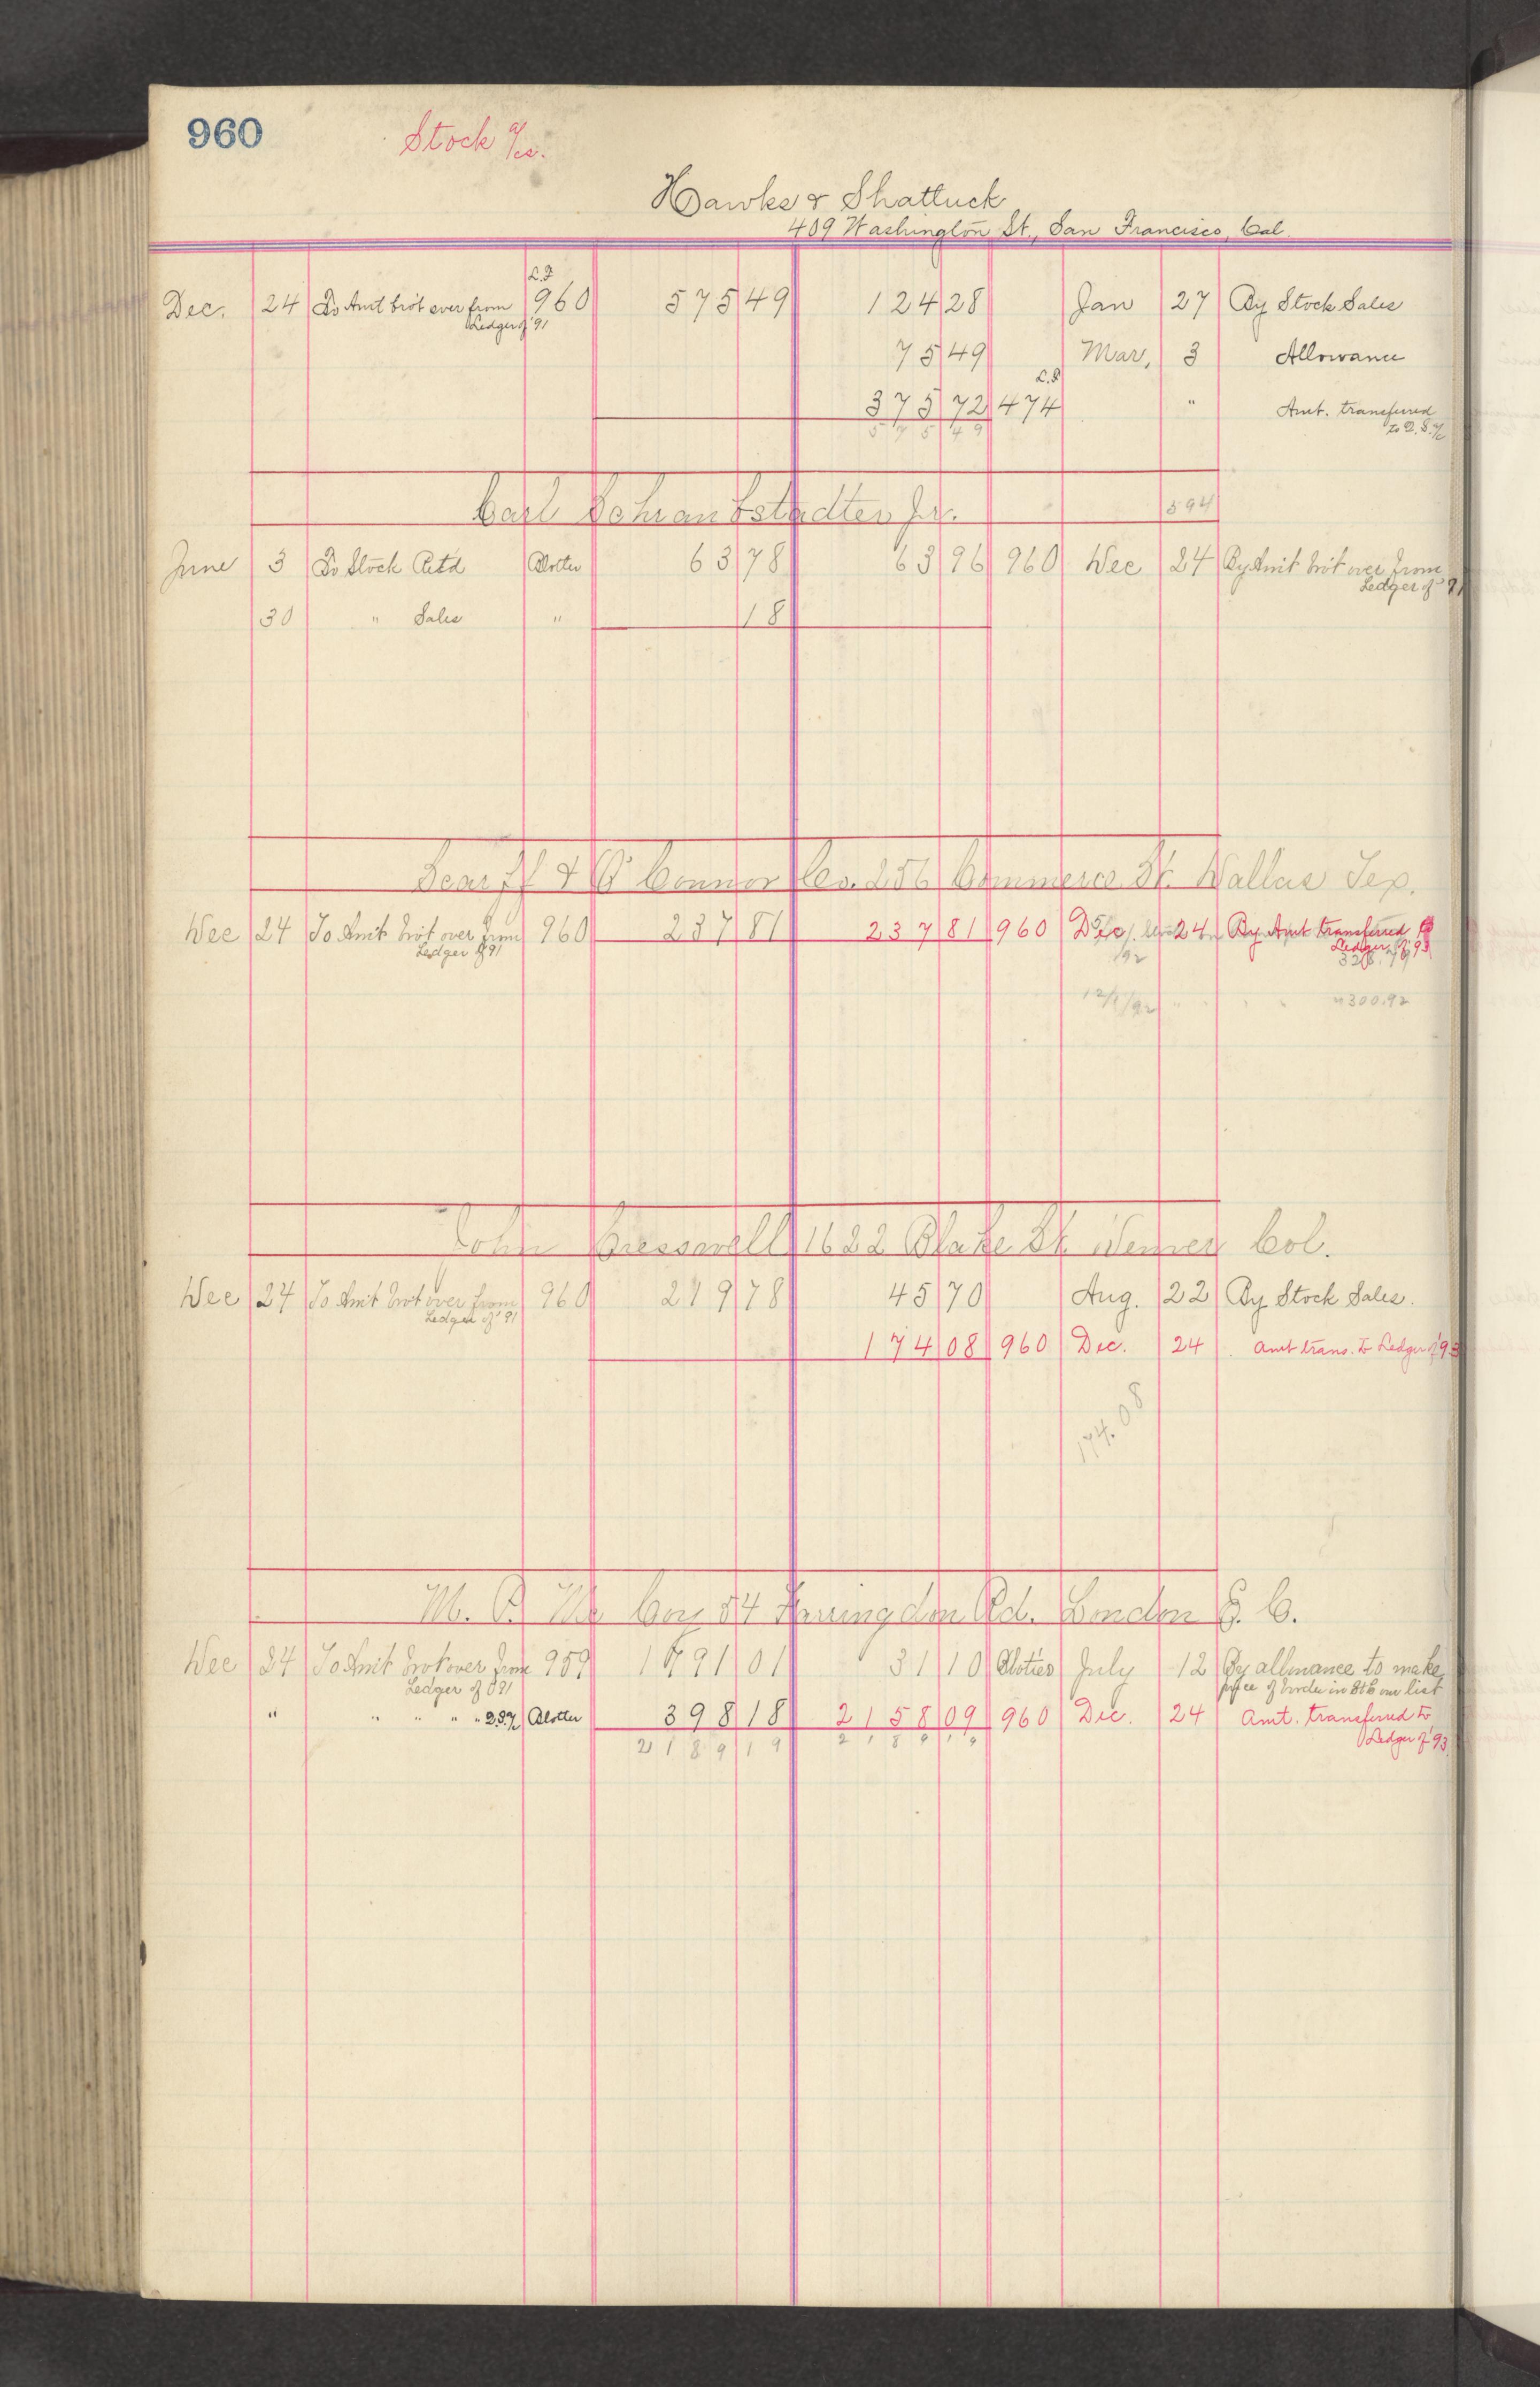 960
Stock a/cs.
Hawks & Shattuck
409 Washington St., San Francisco, Cal.
L.F
Dec. 24 To Amt bro't over from 960 575 49 124 28 Jan 27 By Stock Sales
Ledger of '91
75 49 Mar, 3 Allowance
L.F
375 72 474 " Amt. transferred
to D. S. a/c
575 49
Carl Schraubstadter Jr. 594
June 3 To Stock Ret'd Blotter 63 78 63 96 960 Dec 24 By Amt bro't over from
Ledger of '91
30 " Sales " 18
Scarff & O'Connor Co. 256 Commerce St. Dallas Tex.
Dec 24 To Amt bro't over from 960 237 81 237 81 960 Dec 24 By Amt transferred to
Ledger of '91 Ledger of '93
/92 328.79
12/1/92 " 300.92
John Cresswell 1622 Blake St. Denver Col.
Dec 24 To Amt bro't over from 960 219 78 45 70 Aug. 22 By Stock Sales.
Ledger of '91
174 08 960 Dec. 24 Amt trans. to Ledger of '93
174.08
M. P. McCoy 54 Farringdon Rd. London E. C.
Dec 24 To Amt bro't over from 959 1791 01 31 10 Blotter July 12 By allowance to make
Ledger of '91 price of border in 8th our list
" " " " " Blotter 398 18 2158 09 960 Dec. 24 Amt. transferred to
Ledger of '93
2189 19 2189 19